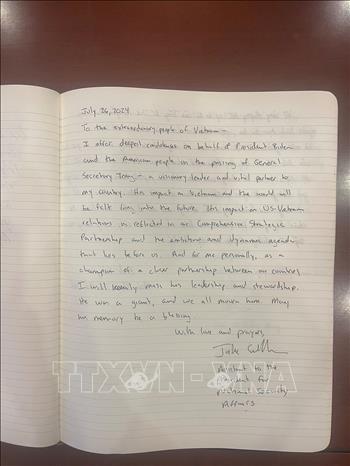 July 26, 2024
To the extraordinary people of Vietnam —
I offer deepest condolences on behalf of President Biden
and the American people on the passing of General
Secretary Trong — a visionary leader and vital partner to
my country. His impact on Vietnam and the world will
be felt long into the future. His impact on US-Vietnam
relations is reflected in our Comprehensive Strategic
Partnership and the ambitious and dynamic agenda
that lies before us. And for me personally, as a
champion of a closer partnership between our countries,
I will keenly miss his leadership and stewardship.
He was a giant, and we all mourn him. May
his memory be a blessing.
With love and prayers,
Assistant to the
President for
National Security
Affairs
TTXVN - VNA